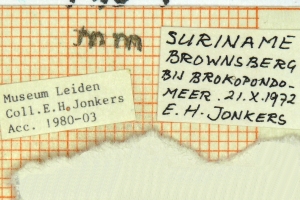 mm
SURINAME
BROWNSBERG
BIJ BROKOPONDO-
MEER. 21.X.1972
E.H. JONKERS
Museum Leiden
Coll.E.H.Jonkers
Acc. 1980-03